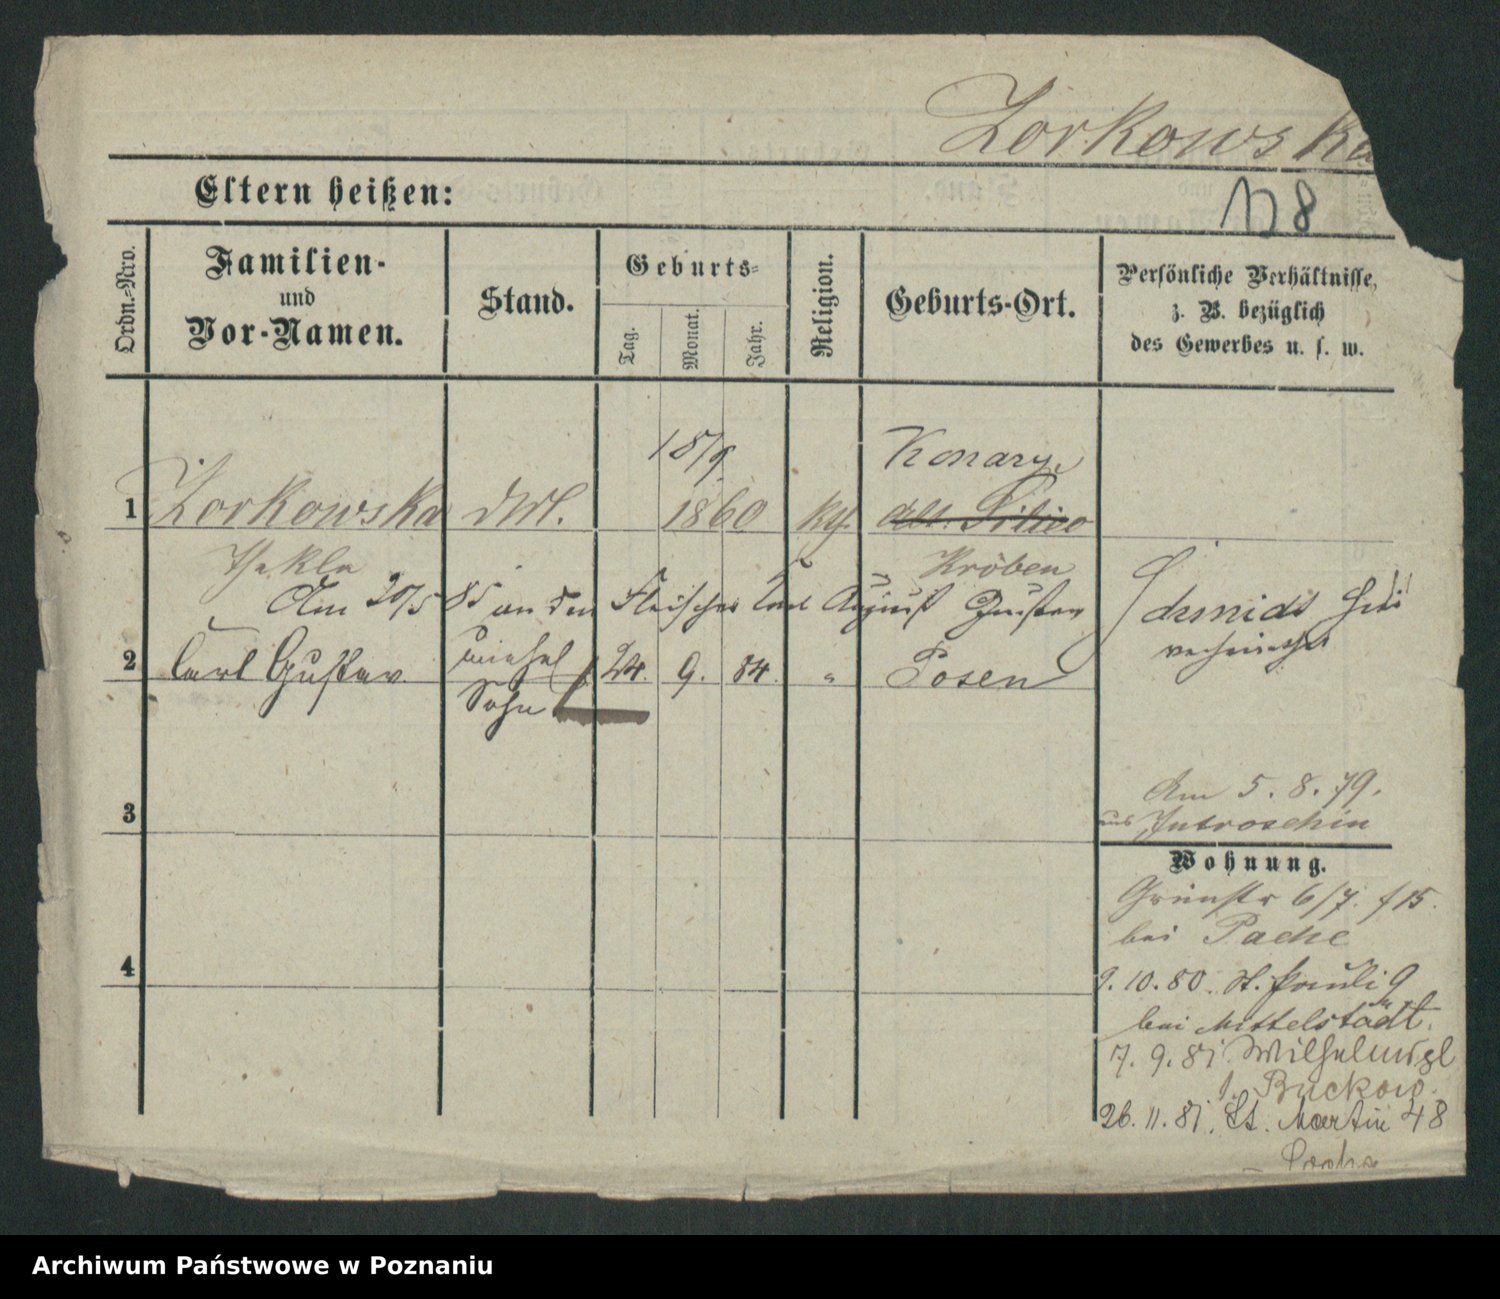 Zorkowska
Eltern heißen:
118
Ordn.-Nro.
Familien-
und
Vor-Namen.
Stand.
Geburts-
Tag.
Monat.
Jahr.
Religion.
Geburts-Ort.
Persönliche Verhältnisse,
z. B. bezüglich
des Gewerbes u. s. w.
18/9 Konary
1 Zorkowska 1860 kth.
Thekla Kröben
Am 20/5 85 an den Fleischer Carl August Gustav Schmidt
verheirathet
2 Carl Gustav unehel 24. 9. 84. " Posen
Sohn
3
Am 5. 8. 79.
aus Jutroschin
Wohnung.
Grünstr 6/7.
bei Pache
4
9. 10. 80. St. Pauli 9
bei Mittelstädt.
7. 9. 81 Wilhelmspl
1. Buckow.
26. 11. 81. St. Martin 48
Archiwum Państwowe w Poznaniu